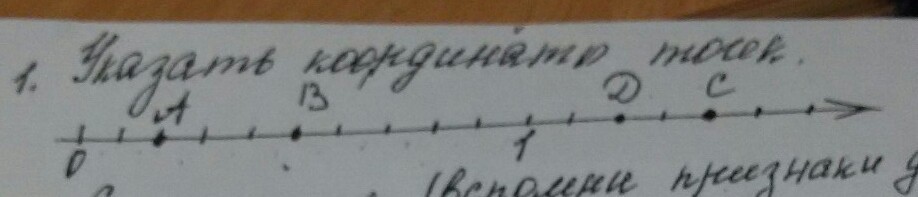 1. Указать координаты точек.
A B D C
0 1
(вспомни признаки